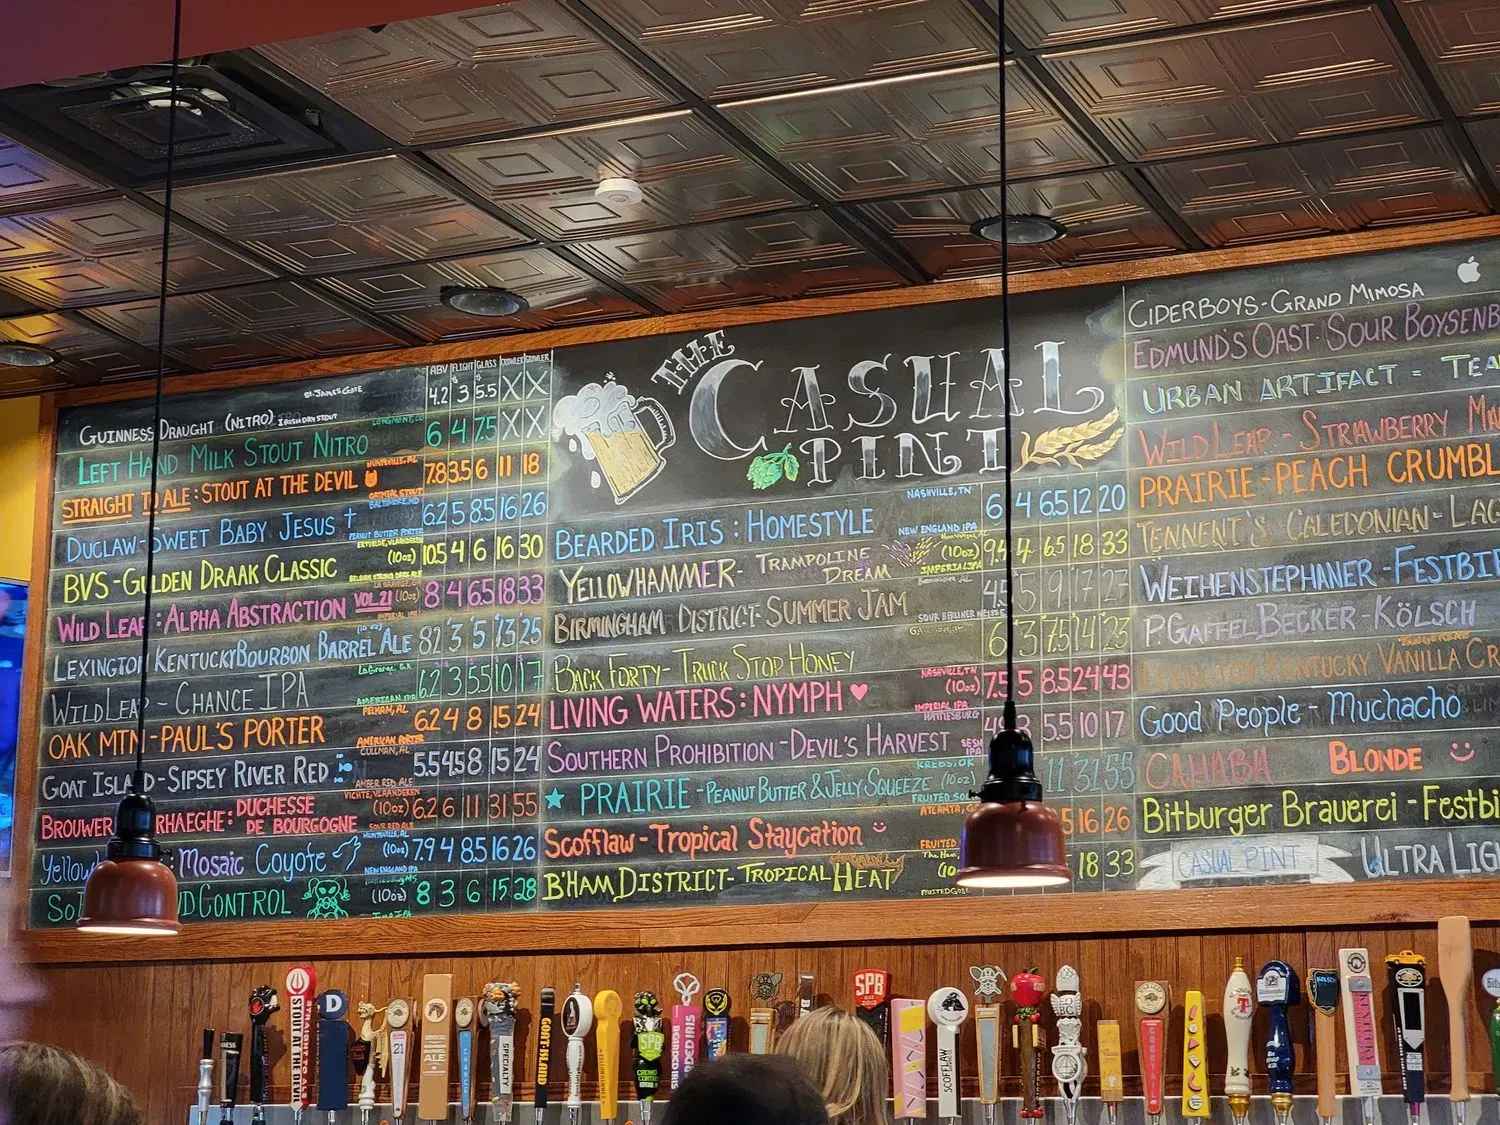 ABV FLIGHT GLASS CROWLER GROWLER
GUINNESS DRAUGHT (NITRO) IRISH DRY STOUT ST. JAMES GATE 4.2 3 5.5 X X
LEFT HAND MILK STOUT NITRO LONGMONT, CO 6 4 7.5 X X
STRAIGHT TO ALE: STOUT AT THE DEVIL HUNTSVILLE, AL OATMEAL STOUT 7.8 3.5 6 11 18
DUCLAW-SWEET BABY JESUS BALTIMORE, MD PEANUT BUTTER PORTER 6.2 5 8.5 16 26
BVS-GULDEN DRAAK CLASSIC (10oz) 10.5 4 6 16 30
WILD LEAP: ALPHA ABSTRACTION VOL.21 (10oz) 8 4 6.5 18 33
LEXINGTON KENTUCKY BOURBON BARREL ALE 8.2 3 5 13 25
WILD LEAP-CHANCE IPA LaGrange, GA AMERICAN IPA 6.2 3 5.5 10 17
OAK MTN-PAUL'S PORTER PELHAM, AL AMERICAN PORTER 6.2 4 8 15 24
GOAT ISLAND-SIPSEY RIVER RED CULLMAN, AL AMBER RED ALE 5.5 4.5 8 15 24
BROUWER RHAEGHE: DUCHESSE DE BOURGOGNE VICHTE, VLAANDEREN (10oz) SOUR RED ALE 6.2 6 11 31 55
: Mosaic Coyote HUNTSVILLE, AL (10oz) NEW ENGLAND IPA 7.9 4 8.5 16 26
CONTROL (10oz) 8 3 6 15 28
THE
CASUAL
PINT
BEARDED IRIS: HOMESTYLE NASHVILLE, TN NEW ENGLAND IPA 6 4 6.5 12 20
YELLOWHAMMER- TRAMPOLINE DREAM (10oz) IMPERIAL IPA 9.4 4 6.5 18 33
BIRMINGHAM DISTRICT-SUMMER JAM SOUR BERLINER WEISSE 4.5 5 9 17 27
BACK FORTY- TRUCK STOP HONEY 6 3 7.5 14 23
LIVING WATERS: NYMPH NASHVILLE, TN (10oz) IMPERIAL IPA 7.5 5 8.5 24 43
SOUTHERN PROHIBITION-DEVIL'S HARVEST HATTIESBURG 5.5 10 17
PRAIRIE-PEANUT BUTTER & JELLY SQUEEZE KREBS, OK (10oz) 11 31 55
Scofflaw-Tropical Staycation 16 26
B'HAM DISTRICT-TROPICAL HEAT 18 33
CIDERBOYS-GRAND MIMOSA
EDMUND'S OAST-SOUR BOYSENB
URBAN ARTIFACT = TEA
WILD LEAP - STRAWBERRY MA
PRAIRIE-PEACH CRUMBL
TENNENT'S CALEDONIAN-LAG
WEIHENSTEPHANER-FESTBIE
P. GAFFEL BECKER-KÖLSCH
KENTUCKY VANILLA CR
Good People-Muchacho
CAHABA BLONDE
Bitburger Brauerei-Festbi
CASUAL PINT ULTRA LIG
STOUT AT THE DEVIL
D
21
ALE
SPECIALTY
GOAT ISLAND
SPB
BEARDED IRIS
SPB
SCOFFLAW
COCKTAIL
T
KÖLSCH
KENTUCKY